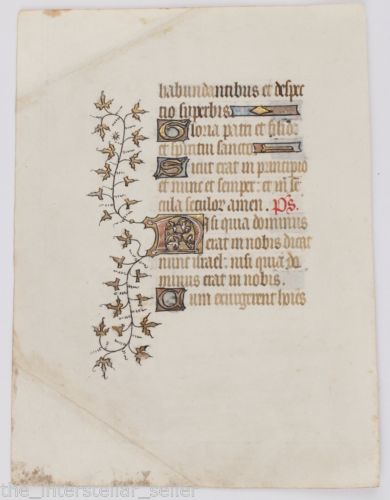 habundantibus et despec
tio superbis
Gloria patri et filio et
et spiritui sancto
Sicut erat in principio
et nunc et semper: et in se
cula seculor amen. Ps.
Nisi quia dominus
erat in nobis dicat
nunc israel: nisi quia do
minus erat in nobis.
Cum exurgerent hoies
the_interstellar_seller